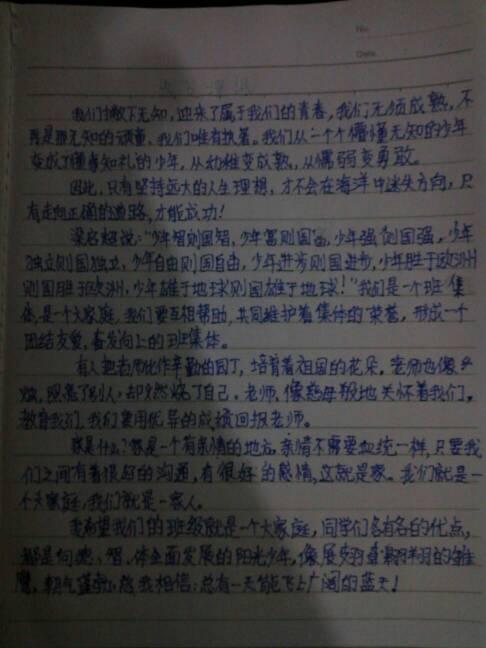 No.
Date.
我们撇下无知，迎来了属于我们的青春，我们无须成熟，不
再是那无知的顽童，我们唯有执著。我们从一个个懵懂无知的少年
变成了懂事知礼的少年，从幼稚变成熟，从懦弱变勇敢。
因此，只有坚持远大的人生理想，才不会在海洋中迷失方向，只
有走向正确的道路，才能成功！
梁启超说：“少年智则国智，少年富则国富，少年强则国强，少年
独立则国独立，少年自由则国自由，少年进步则国进步，少年胜于欧洲
则国胜于欧洲，少年雄于地球则国雄于地球！”我们是一个班集
体，是一个大家庭，我们要互相帮助，共同维护着集体的荣誉，形成一个
团结友爱，奋发向上的班集体。
有人把老师比作辛勤的园丁，培育着祖国的花朵。老师也像
烛，照亮了别人，却燃烧了自己。老师，像慈母般地关怀着我们，
教育我们，我们要用优异的成绩回报老师。
家是什么？家是一个有亲情的地方。亲情不需要血统一样，只要我
们之间有着很好的沟通，有很好的感情，这就是家。我们就是一
个大家庭，我们就是一家人。
我希望我们的班级就是一个大家庭，同学们各有各的优点，
都是向德、智、体全面发展的阳光少年，像展翅翱翔的雏
鹰，朝气蓬勃，我相信：总有一天能飞上广阔的蓝天！